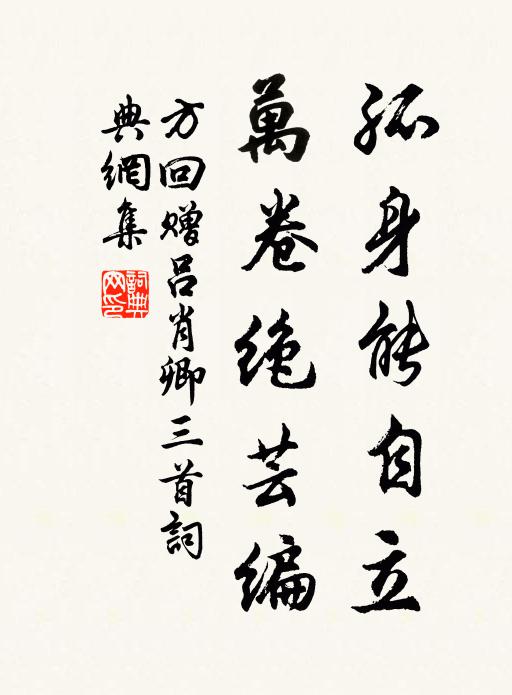 孤身能自立
萬卷绝芸编
方回赠吕肖卿三首詞
典網集
詞典
网印